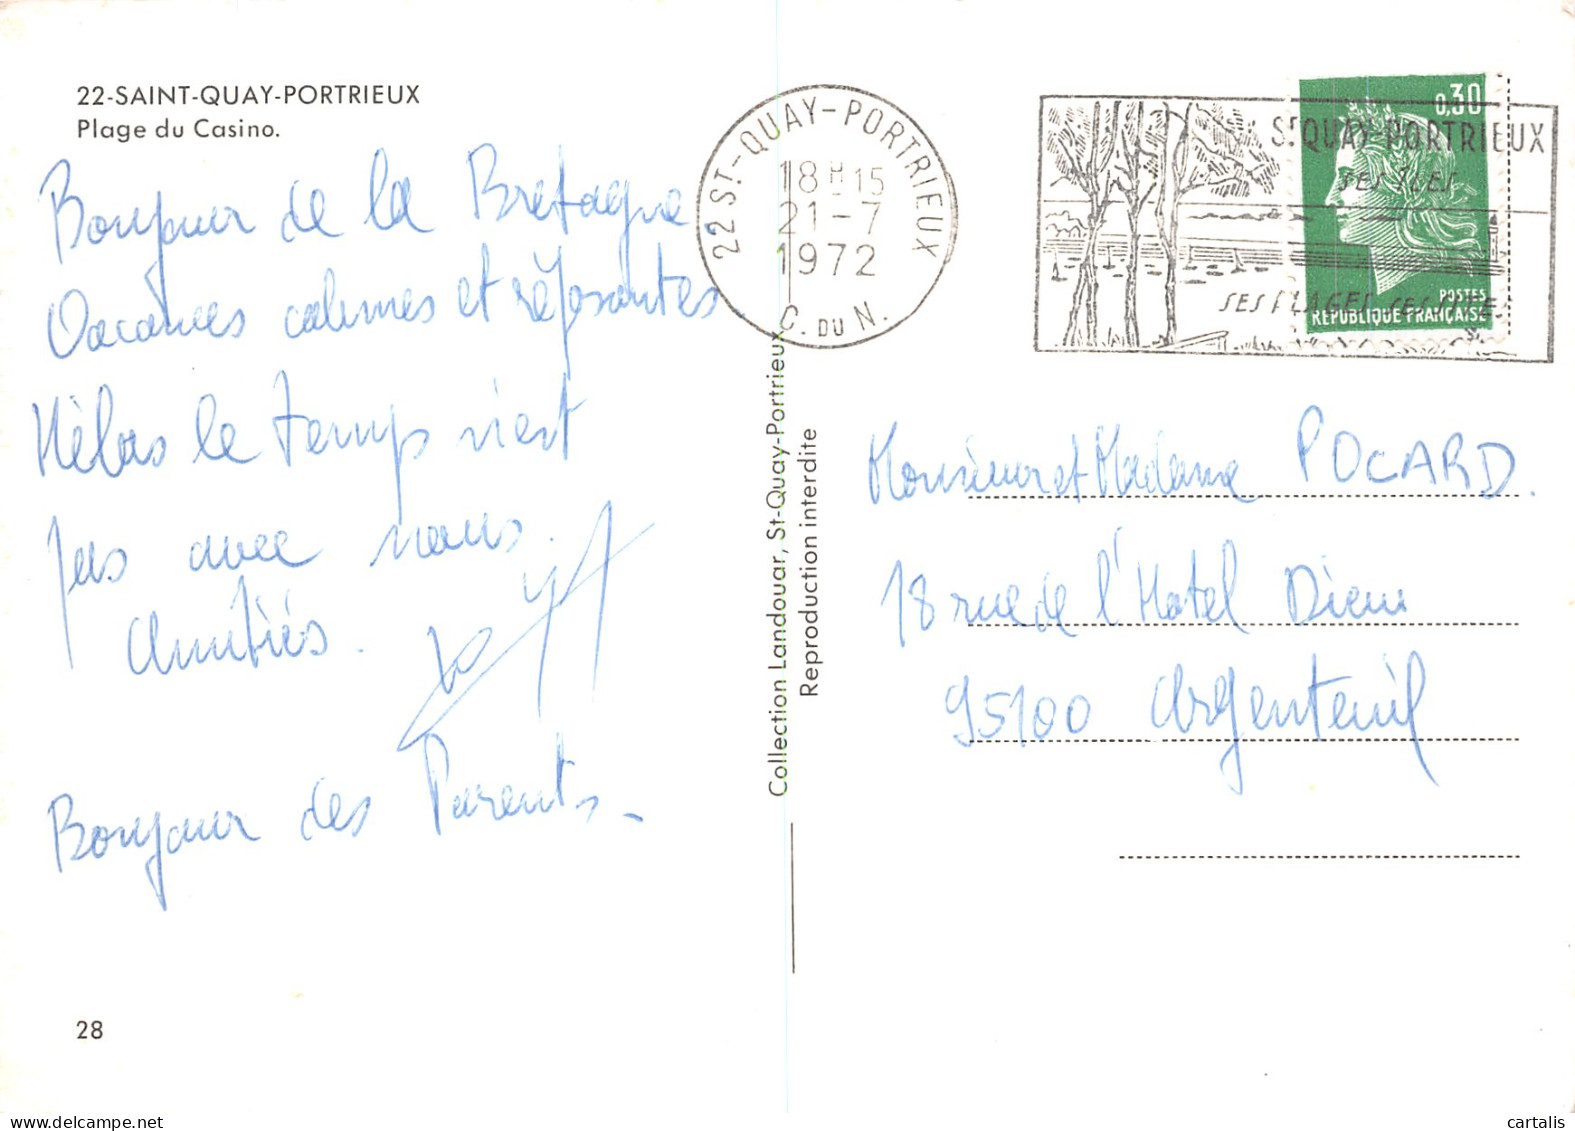 22-SAINT-QUAY-PORTRIEUX
Plage du Casino.
Bonjour de la Bretagne
Vacances calmes et réposantes.
Hélas le temps n'est
pas avec nous.
Amitiés.
Bonjour des Parents.
28
22 ST-QUAY-PORTRIEUX
18H15
21-7
1972
C. DU N.
Collection Landouar, St-Quay-Portrieux
Reproduction interdite
0,30
POSTES
REPUBLIQUE FRANÇAISE
St QUAY-PORTRIEUX
SES ILES
SES PLAGES SES
Monsieur et Madame POCARD.
18 rue de l'Hotel Dieu
95100 Argenteuil
cartalis